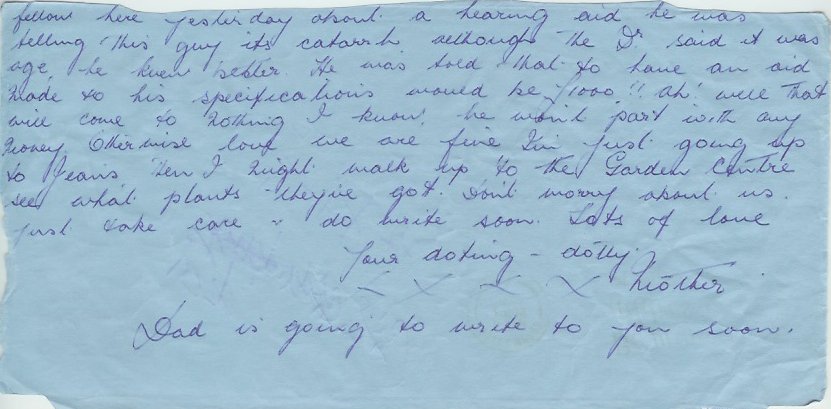 fellow here yesterday about a hearing aid he was
telling this guy its catarrh, although the Dr said it was
age, he knew better. He was told that to have an aid
made to his specifications would be £1000!! ah! well that
will come to nothing I know, he won't part with any
money. Otherwise love we are fine I'm just going up
to Jeans then I might walk up to the Garden Centre
see what plants they've got. Dont worry about us.
just take care & do write soon. Lots of love
Your doting - dotty
X X X X Mother
Dad is going to write to you soon.